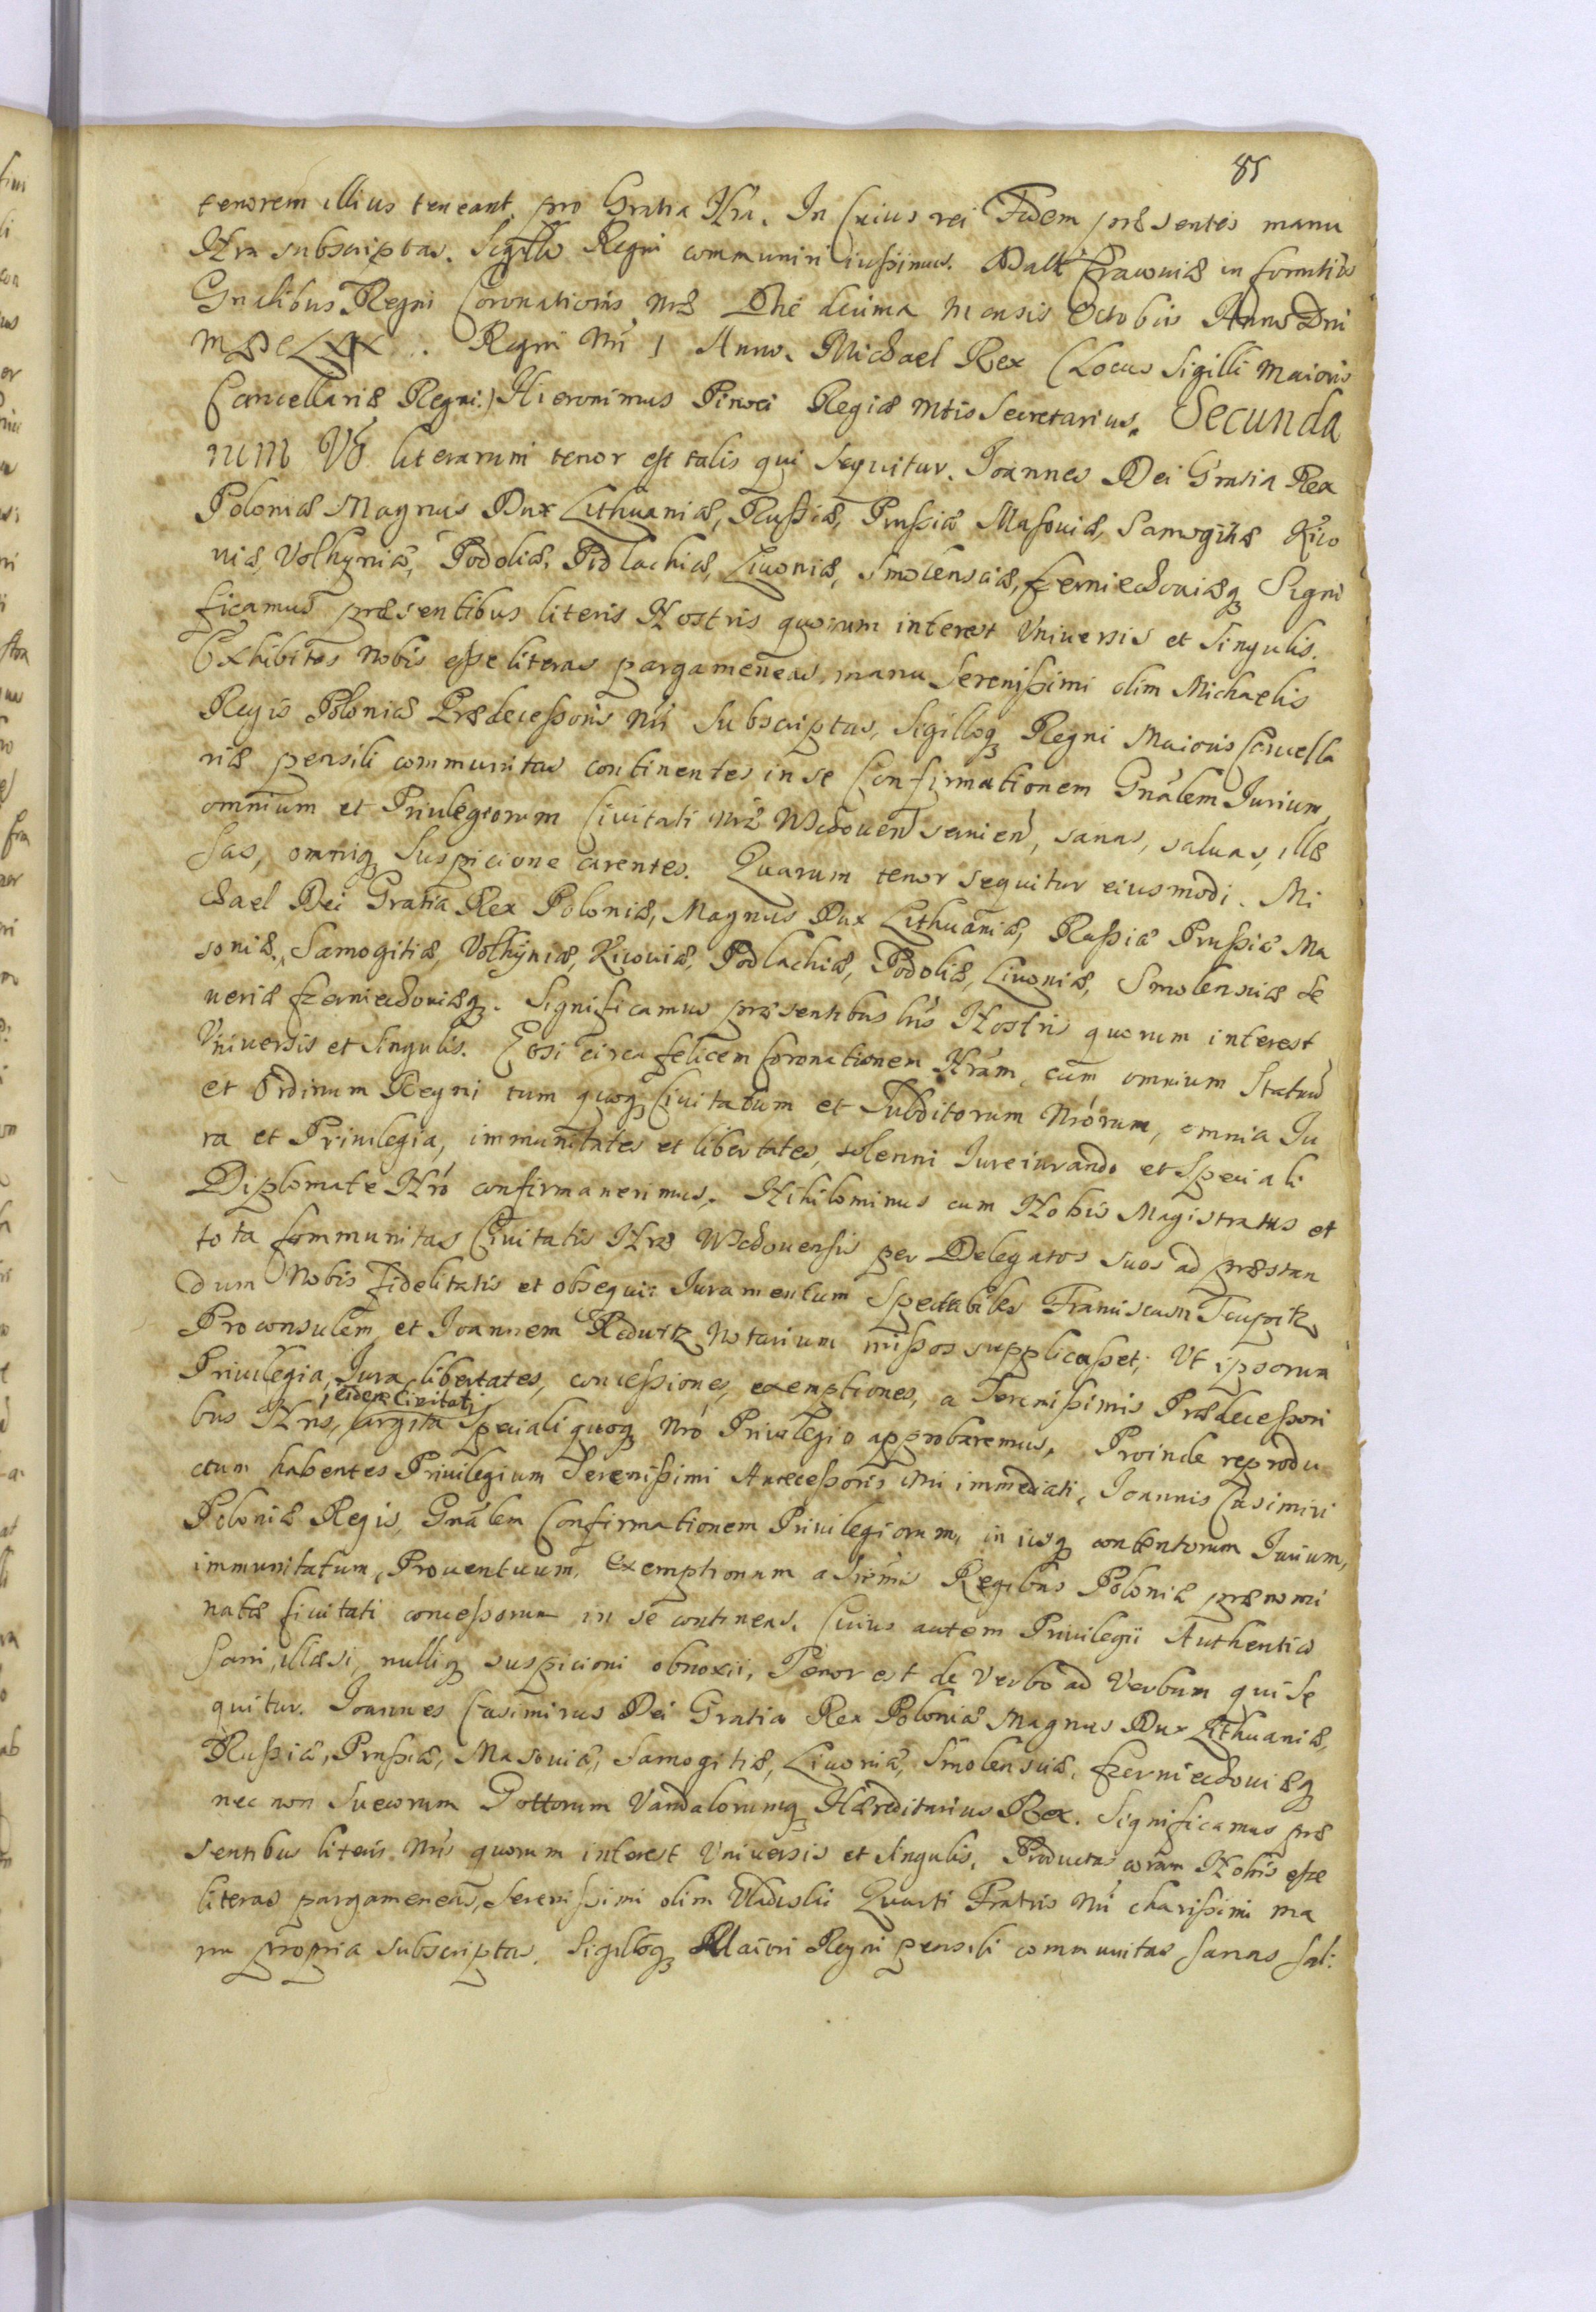 85
tenorem illius teneant, pro Gratia Nrâ. In Cuius rei Fidem præsentes manu
Nra subscriptas. Sigillo Regni communiri iussimus. Datt Cracoviæ in Comitiis
Gnalibus Regni Coronationis nræ Die decima Mensis Octobris Anno Dni
MDCLXIX. Regni Nri I Anno. Michael Rex (Locus Sigilli Maioris
Cancellariæ Regni.) Hieronimus Pinoci Regiæ Mtis Secretarius. Secunda
rum Vo literarum tenor est talis qui sequitur. Joannes Dei Gratia Rex
Poloniæ Magnus Dux Lithuaniæ, Russiæ, Prussiæ Masoviæ, Samogitiæ Kijo
viæ, Volhyniæ, Podoliæ, Podlachiæ, Livoniæ, Smolensciæ, Czerniechoviæq Signi
ficamus præsentibus literis Nostris quorum interest Vniversis et Singulis.
Exhibitas Nobis esse literas pargameneas, manu Serenissimi olim Michaelis
Regis Poloniæ Prædecessoris Nri Subscriptas, Sigilloq Regni Maioris Cancella
riæ pensili communitas continentes in se Confirmationem Gnâlem Jurium
omnium et Privilegiorum Civitati Nræ Wschouen servien, sanas, saluas, illæ
sas, omniq Suspicione carentes. Quarum tenor sequitur eiusmodi. Mi
chael Dei Gratia Rex Poloniæ, Magnus Dux Lithuaniæ, Russiæ Prussiæ Ma
soviæ, Samogitiæ, Volhyniæ, Kijoviæ, Podlachiæ, Podoliæ, Livoniæ, Smolensciæ Se
veriæ Czerniechoviæq. Significamus præsentibus lris Nostris quorum interest
Vniversis et Singulis. Etsi circa felicem Coronationem Nrám, cum omnium Statuũ
et Ordinum Regni tum quoq Civitatum et Subditorum Nrórum, omnia Ju
ra et Privilegia, immunitates et libertates, solenni Jureiurando et Speciali
Diplomate Nró confirmaverimus. Nihilominus cum Nobis Magistratus et
tota Communitas Civitatis Nræ Wschouensis per Delegatos suos ad præstan
dum Nobis Fidelitatis et obsequii Juramentum Spectabiles Franciscum
Proconsulem et Joannem Notarium missos supplicasset; Vt ipsorum
Privilegia, Jura libertates, concessiones, exemptiones, a Serenissimis Prædecessori
eidem Civitati
bus Nris, largita Speciali quoq Nró Privilegio approbaremus. Proinde reprodu
ctum habentes Privilegium Serenissimi Antecessoris Nri immediati, Joannis Casimiri
Poloniæ Regis, Gnâlem Confirmationem Privilegiorum, in iisq contentorum Jurium,
immunitatum, Proventuum, Exemptionum a Srenis Regibus Poloniæ prænomi
natæ Civitati concessorum in se continens. Cuius autem Privilegii Authentici
Sani, illæsi, nulliq suspicioni obnoxii, Tenor est de Verbo ad Verbum qui Se
quitur. Joannes Casimirus Dei Gratia Rex Poloniæ Magnus Dux Lithuaniæ,
Russiæ, Prussiæ, Masoviæ, Samogitiæ, Livoniæ, Smolensciæ, Czerniechoviæq
nec non Suecorum Gottorum Vandalorumq Hæreditarius Rex. Significamus præ
sentibus literis Nris quorum interest Vniversis et Singulis. Productas coram Nobis esse
literas pargameneas, Serenissimi olim Vladislai Quarti Fratris Nri charissimi ma
nu propria subscriptas, Sigilloq Maiori Regni pensili communitas sanas sal: